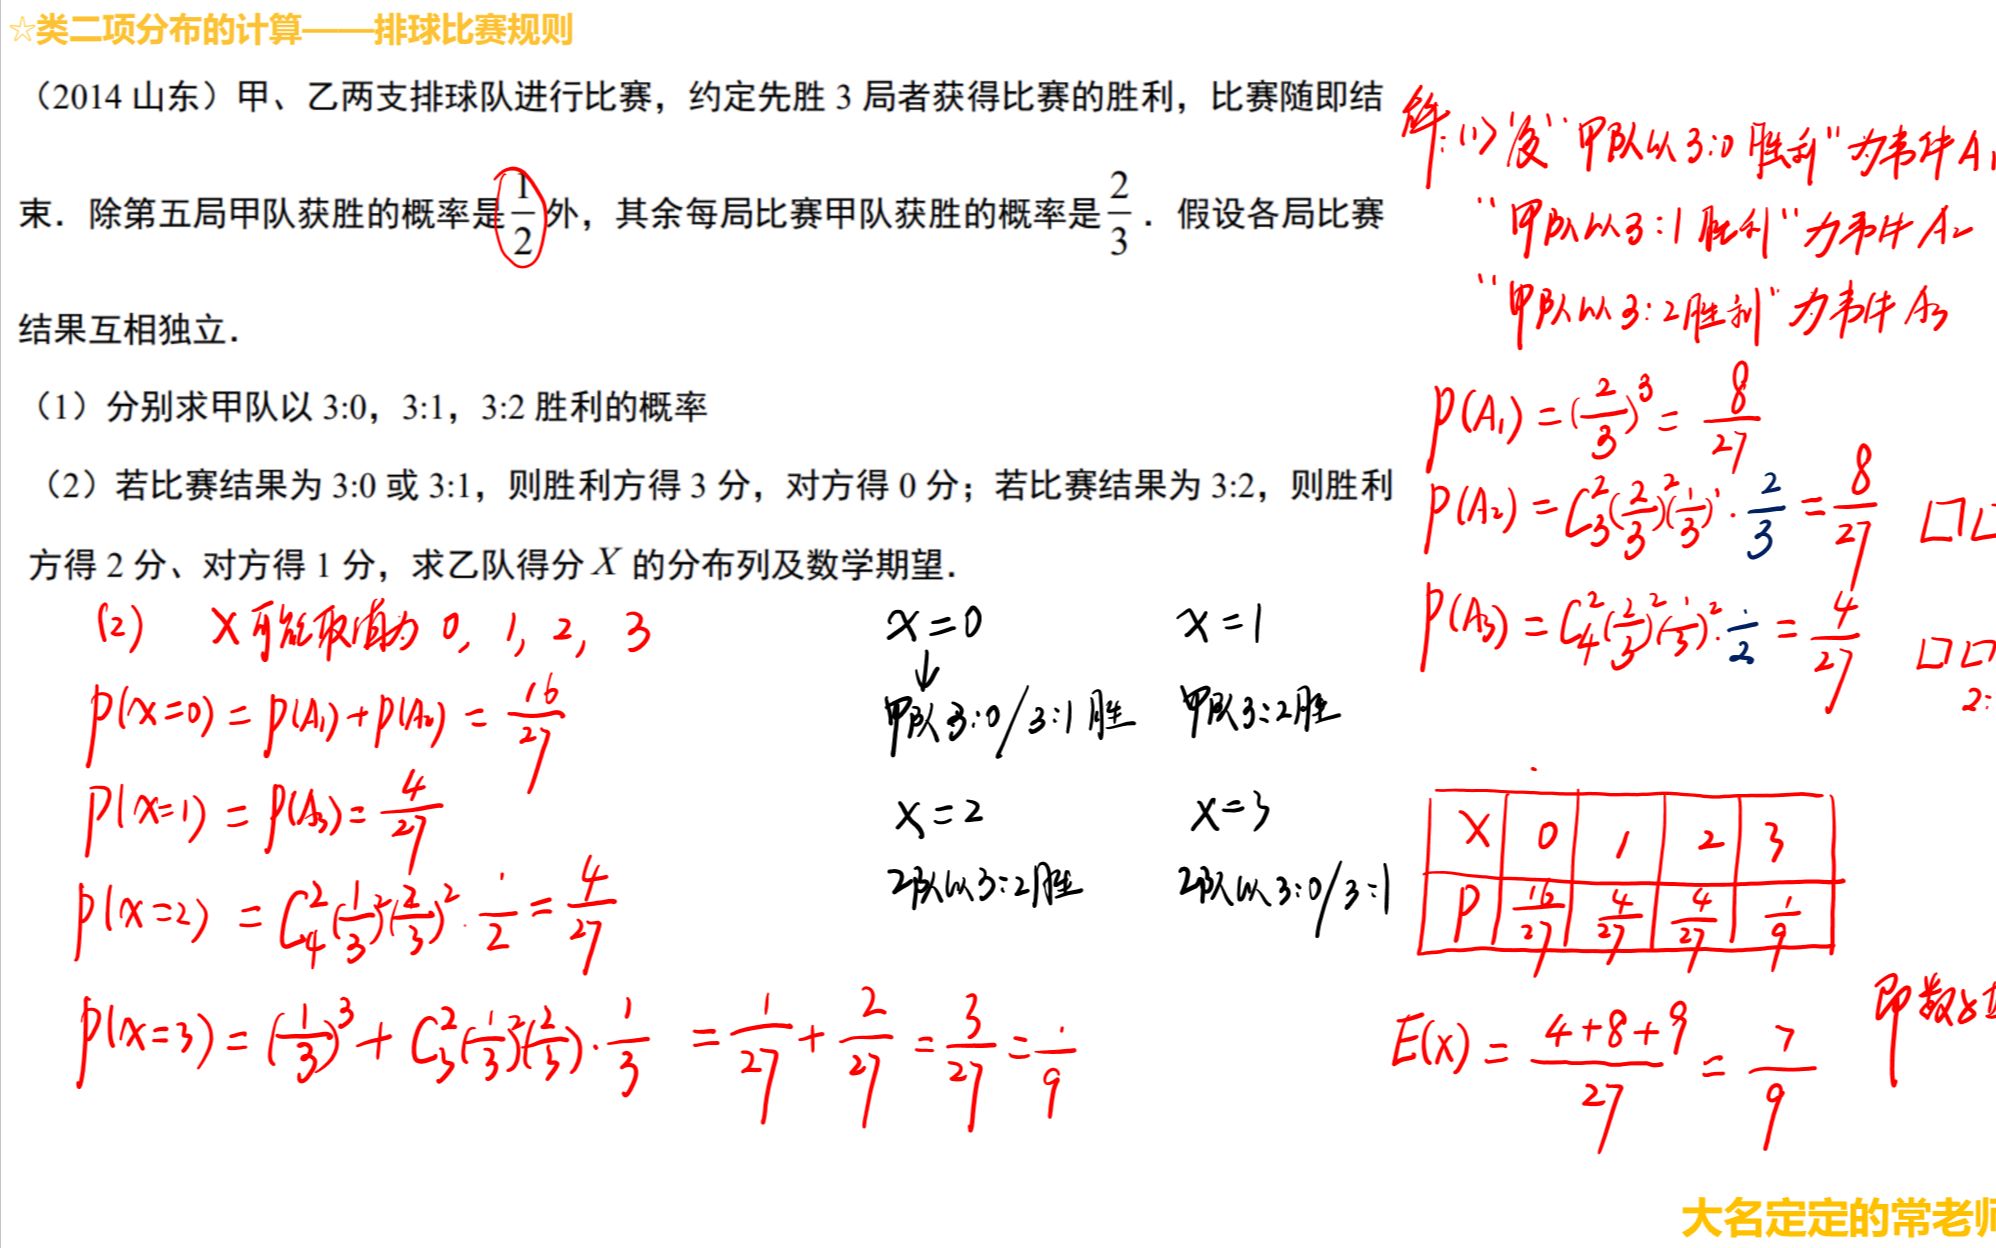 ☆类二项分布的计算——排球比赛规则
（2014 山东）甲、乙两支排球队进行比赛，约定先胜 3 局者获得比赛的胜利，比赛随即结
束．除第五局甲队获胜的概率是 1/2 外，其余每局比赛甲队获胜的概率是 2/3．假设各局比赛
结果互相独立．
（1）分别求甲队以 3:0，3:1，3:2 胜利的概率
（2）若比赛结果为 3:0 或 3:1，则胜利方得 3 分，对方得 0 分；若比赛结果为 3:2，则胜利
方得 2 分、对方得 1 分，求乙队得分 X 的分布列及数学期望．
解:(1) 设"甲队以3:0胜利"为事件A₁
"甲队以3:1胜利"为事件A₂
"甲队以3:2胜利"为事件A₃
P(A₁) = (2/3)³ = 8/27
P(A₂) = C₃²(2/3)²(1/3)¹·2/3 = 8/27
P(A₃) = C₄²(2/3)²(1/3)²·1/2 = 4/27
2:
(2) X可能取值为 0, 1, 2, 3
P(X=0) = P(A₁)+P(A₂) = 16/27
P(X=1) = P(A₃) = 4/27
P(X=2) = C₄²(1/3)²(2/3)²·1/2 = 4/27
P(X=3) = (1/3)³ + C₃²(1/3)²(2/3)·1/3 = 1/27 + 2/27 = 3/27 = 1/9
X=0 X=1
↓
甲队3:0/3:1胜 甲队3:2胜
X=2 X=3
乙队以3:2胜 乙队以3:0/3:1
X 0 1 2 3
P 16/27 4/27 4/27 1/9
E(X) = (4+8+9)/27 = 7/9
即数
大名定定的常老师